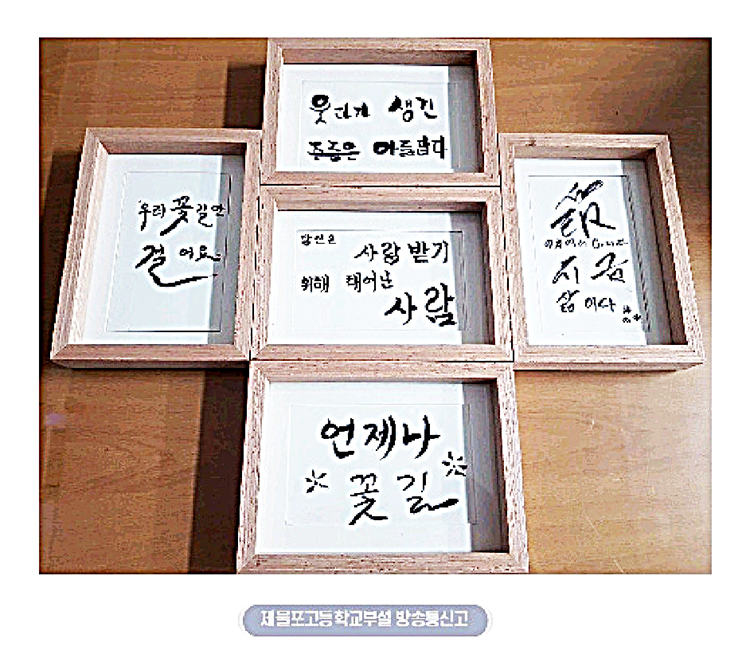 웃다가 생긴
주름은 아름답다
우리 꽃길만
걸어요
당신은
사랑 받기
위해 태어난
사람
지금
삶이다
언제나
꽃길
제물포고등학교부설 방송통신고